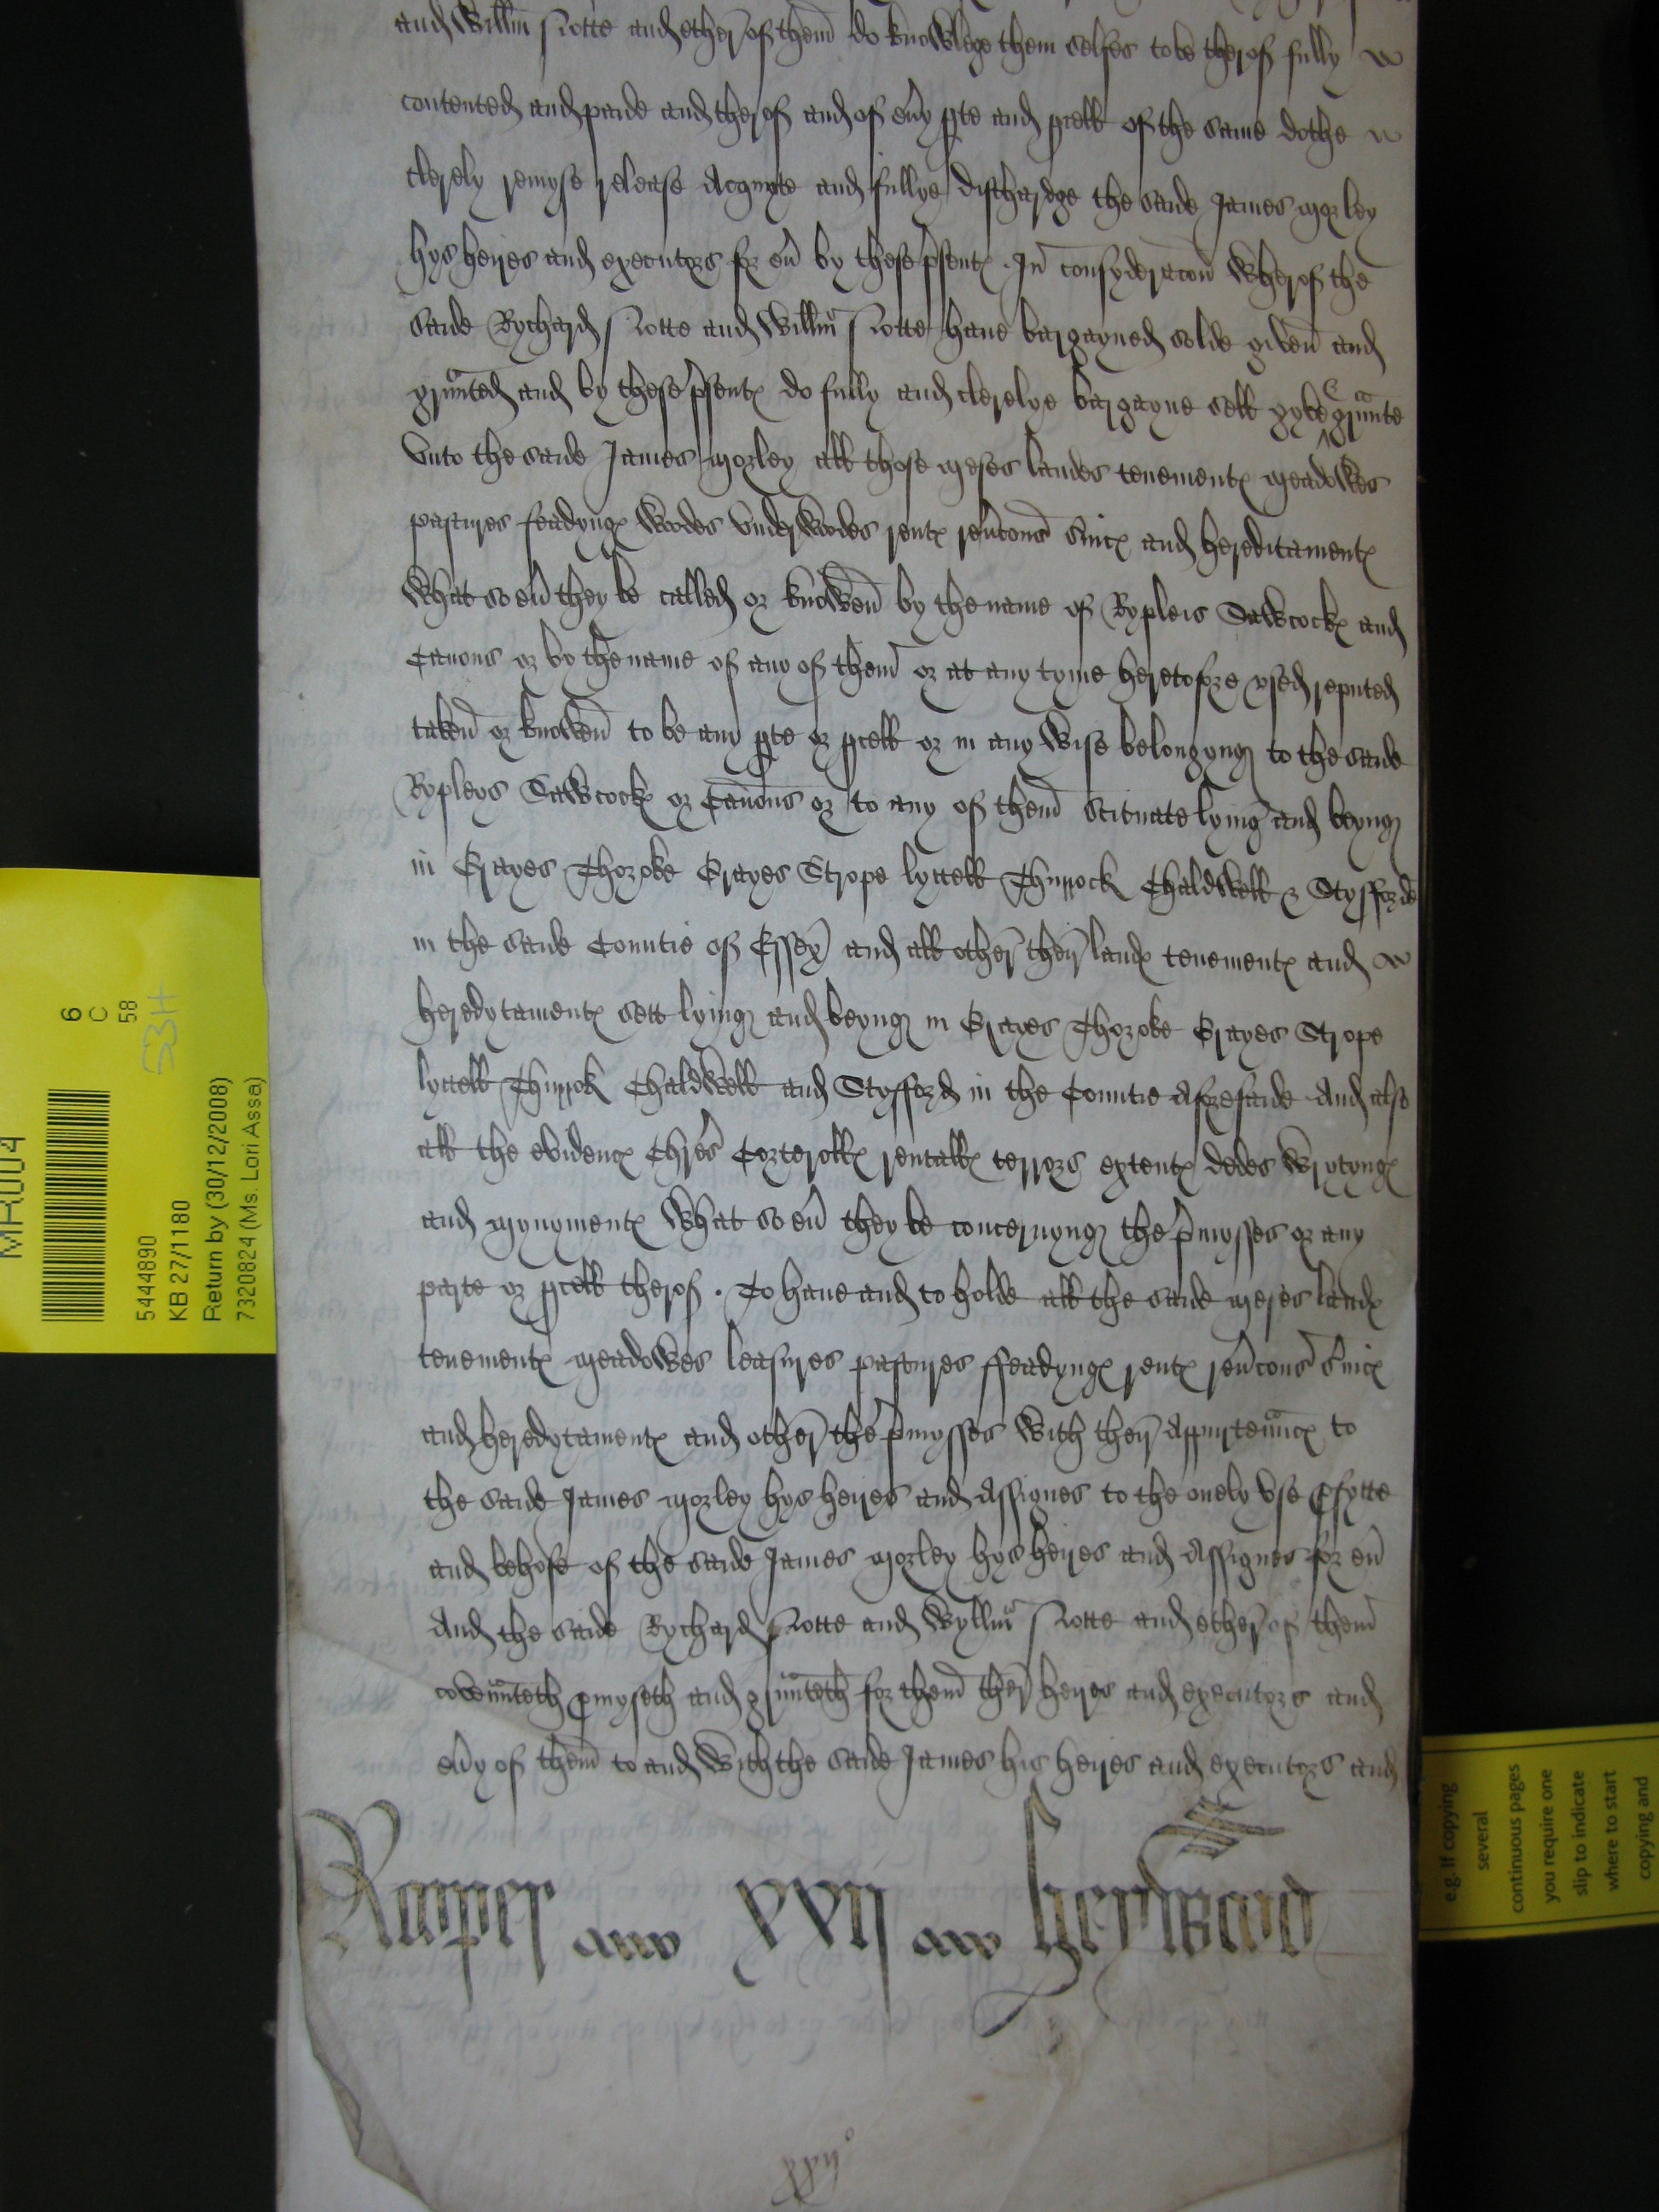 and Willm Notte and ether of them do knowlege them selfes to be therof fully
contented and paide and therof and of eny pte and pcell of the same dothe
clerely remyse release Acquyte and fullye dischardge the saide James Morley
hys heires and executors for eu by these psent In consyderacon wherof the
saide Rychard Notte and Willm Notte haue bargayned solde given and
graunted and by these psent do fully and clerelye bargayne sell gyve & graunte
Unto the saide James Morley all those meses landes tenement meadowes
pastures feadyng wodes underwodes rent reucons suic and hereditament
what so eu they be called or knowen by the name of Rypleis Sawcock and
Canons or by the name of any of them or at any tyme heretofore used reputed
taken or knowen to be any pte or pcell or in any wise belongyng to the saide
Rypleys Sawcock or Canons or to any of them scituate lying and beyng
in Grayes Thoroke Grayes Strope lyttell Thurrock Chaldwell & Styfforde
in the saide Countie of Essex and all other their land tenement and
heredytament sett lying and beyng in Grayes Thoroke Grayes Strope
lyttell Thurrok Chaldwell and Stifford in the Countie Aforesaide And also
all the evidenc Chres Corterolls rentalls terrors extent dedes wrytyng
and mynyment what so eu they be concernyng the pmysses or any
parte or pcell therof . To haue and to holde all the saide meses land
tenement meadowes leasures pastures ffeadyng rent reucons suic
and heredytament and other the pmysses with their Appurtenunc to
the saide James Morley hys heires and Assignes to the onely use pfytte
and behofe of the saide James Morley hys heires and Assignes for eu
And the saide Rychard Notte and Wyllm Notte and ether of them
covenunteth pmyseth and graunteth for them their heires and executors and
euy of them to and with the saide James his heires and executors and
xxij°
MR004
6
C
58
53H
5444890
KB 27/1180
Return by (30/12/2008)
7320824 (Ms. Lori Assa)
e.g. If copying
several
continuous pages
you require one
slip to indicate
where to start
copying and